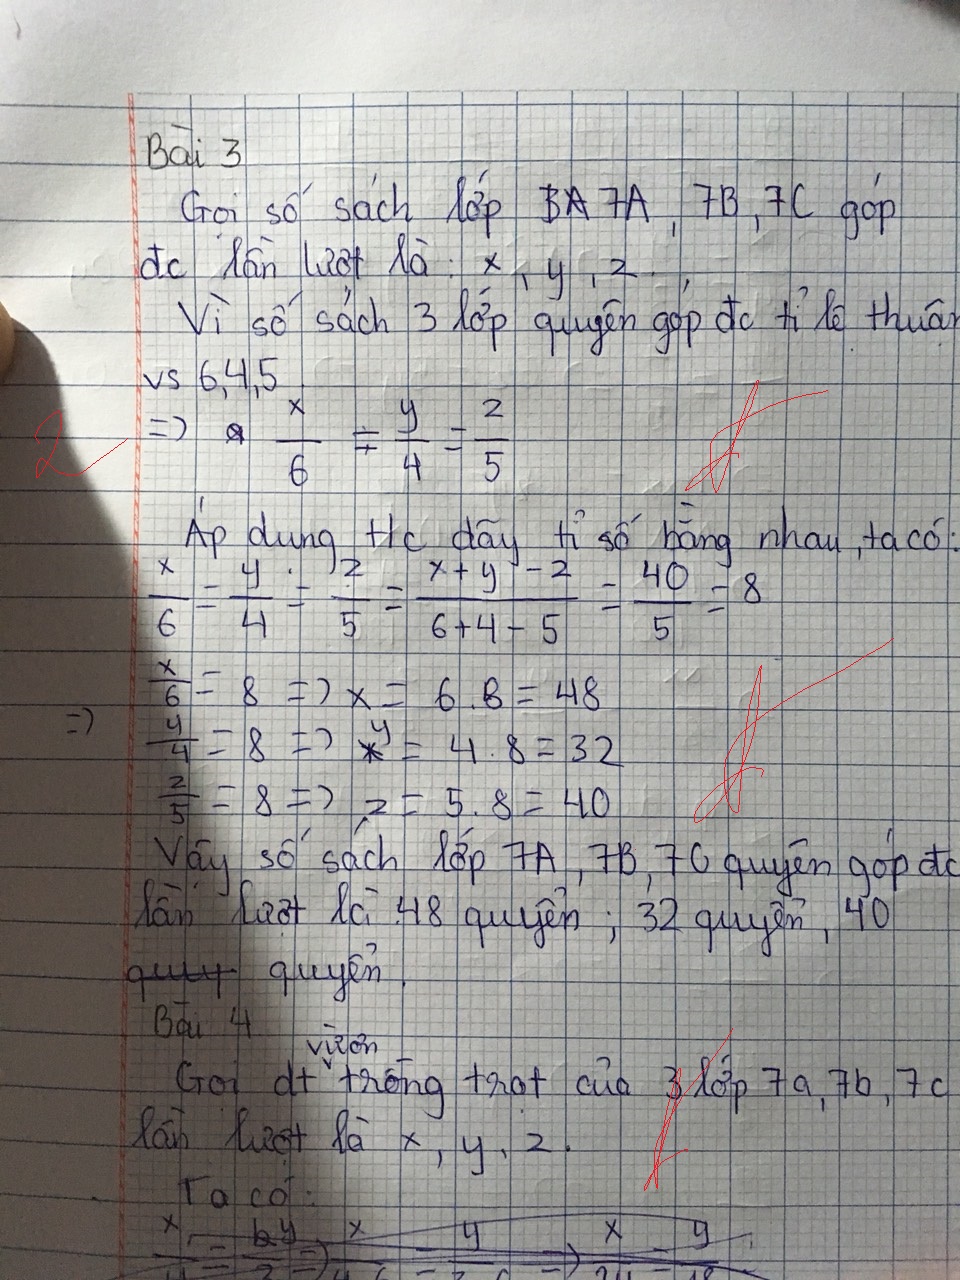 Bài 3
Gọi số sách lớp 7A, 7B, 7C góp
đc lần lượt là: x, y, z.
Vì số sách 3 lớp quyên góp đc tỉ lệ thuận
vs 6,4,5
=> x/6 = y/4 = z/5
2
Áp dụng t/c dãy tỉ số bằng nhau, ta có:
x/6 = y/4 = z/5 = x+y-z/6+4-5 = 40/5 = 8
x/6 = 8 => x = 6.8 = 48
=> y/4 = 8 => y = 4.8 = 32
z/5 = 8 => z = 5.8 = 40
Vậy số sách lớp 7A, 7B, 7C quyên góp đc
lần lượt là 48 quyển; 32 quyển, 40
quy quyển.
Bài 4
Gọi dt vườn trồng trọt của 3 lớp 7a, 7b, 7c
lần lượt là x, y, z.
Ta có: